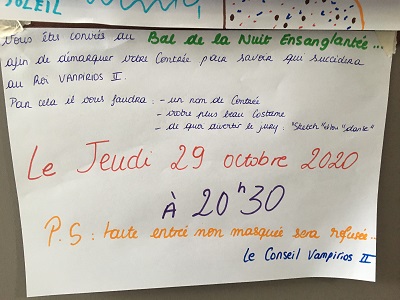 SOLEIL
Vous êtes conviés au Bal de la Nuit Ensanglantée...
afin de démarquer votre Contrée pour savoir qui succédera
au Roi VAMPIRIOS II.
Pour cela il vous faudra : - un nom de Contrée
- votre plus beau Costume
- de quoi divertir le jury : "Sketch" "danse"
Le Jeudi 29 octobre 2020
À 20h30
P.S : toute entré non masquée sera refusée...
Le Conseil Vampirios II